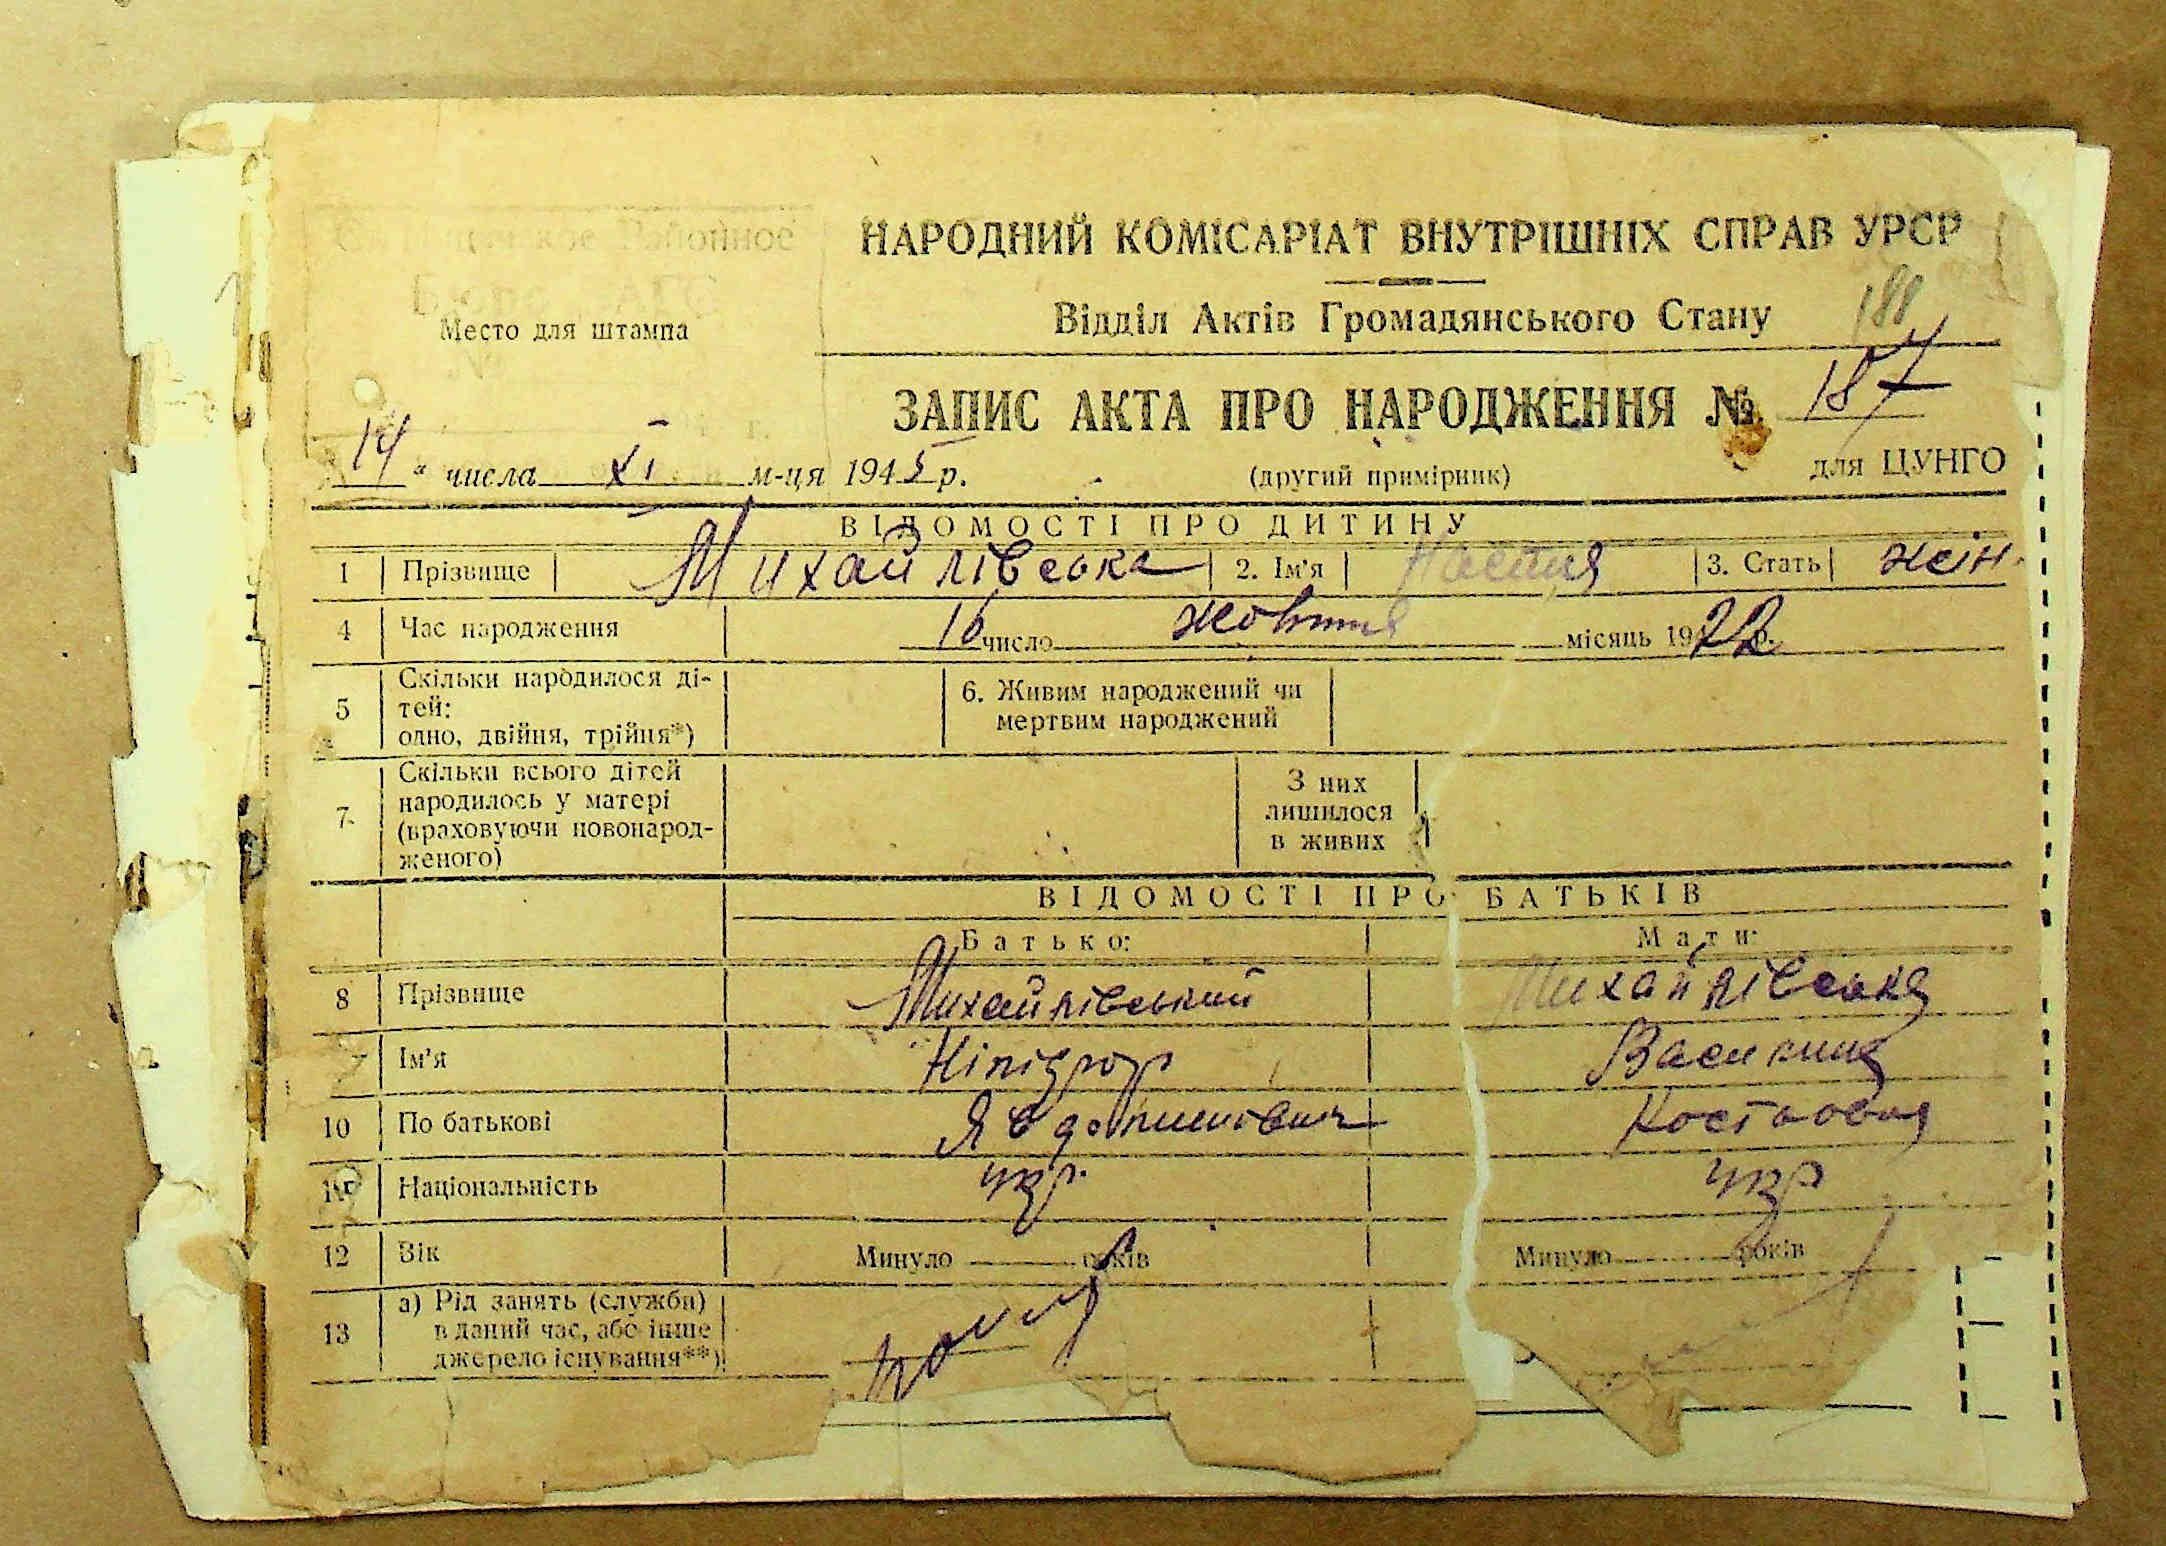 Районное
Бюро ЗАГС
Место для штампа
НАРОДНИЙ КОМІСАРІАТ ВНУТРІШНІХ СПРАВ УРСР
Відділ Актів Громадянського Стану
188
ЗАПИС АКТА ПРО НАРОДЖЕННЯ № 187
14 " числа XI м-ця 1945 р. (другий примірник) для ЦУНГО
ВІДОМОСТІ ПРО ДИТИНУ
1 Прізвище Михайлівська 2. Ім'я Настя 3. Стать жін.
4 Час народження 16 число жовтня місяць 1922 р.
5 Скільки народилося ді-
тей:
одно, двійня, трійня*)
6. Живим народжений чи
мертвим народжений
7. Скільки всього дітей
народилось у матері
(враховуючи новонарод-
женого)
З них
лишилося
в живих
ВІДОМОСТІ ПРО БАТЬКІВ
Батько: Мати:
8 Прізвище Михайлівський Михайлівська
Ім'я Василина
10 По батькові
Національність укр. укр
12 Вік Минуло років Минуло років
13 а) Рід занять (служби)
в даний час, або інше
джерело існування**)